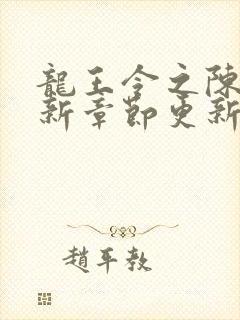 龍王令之陳
新章節更新
趙平教